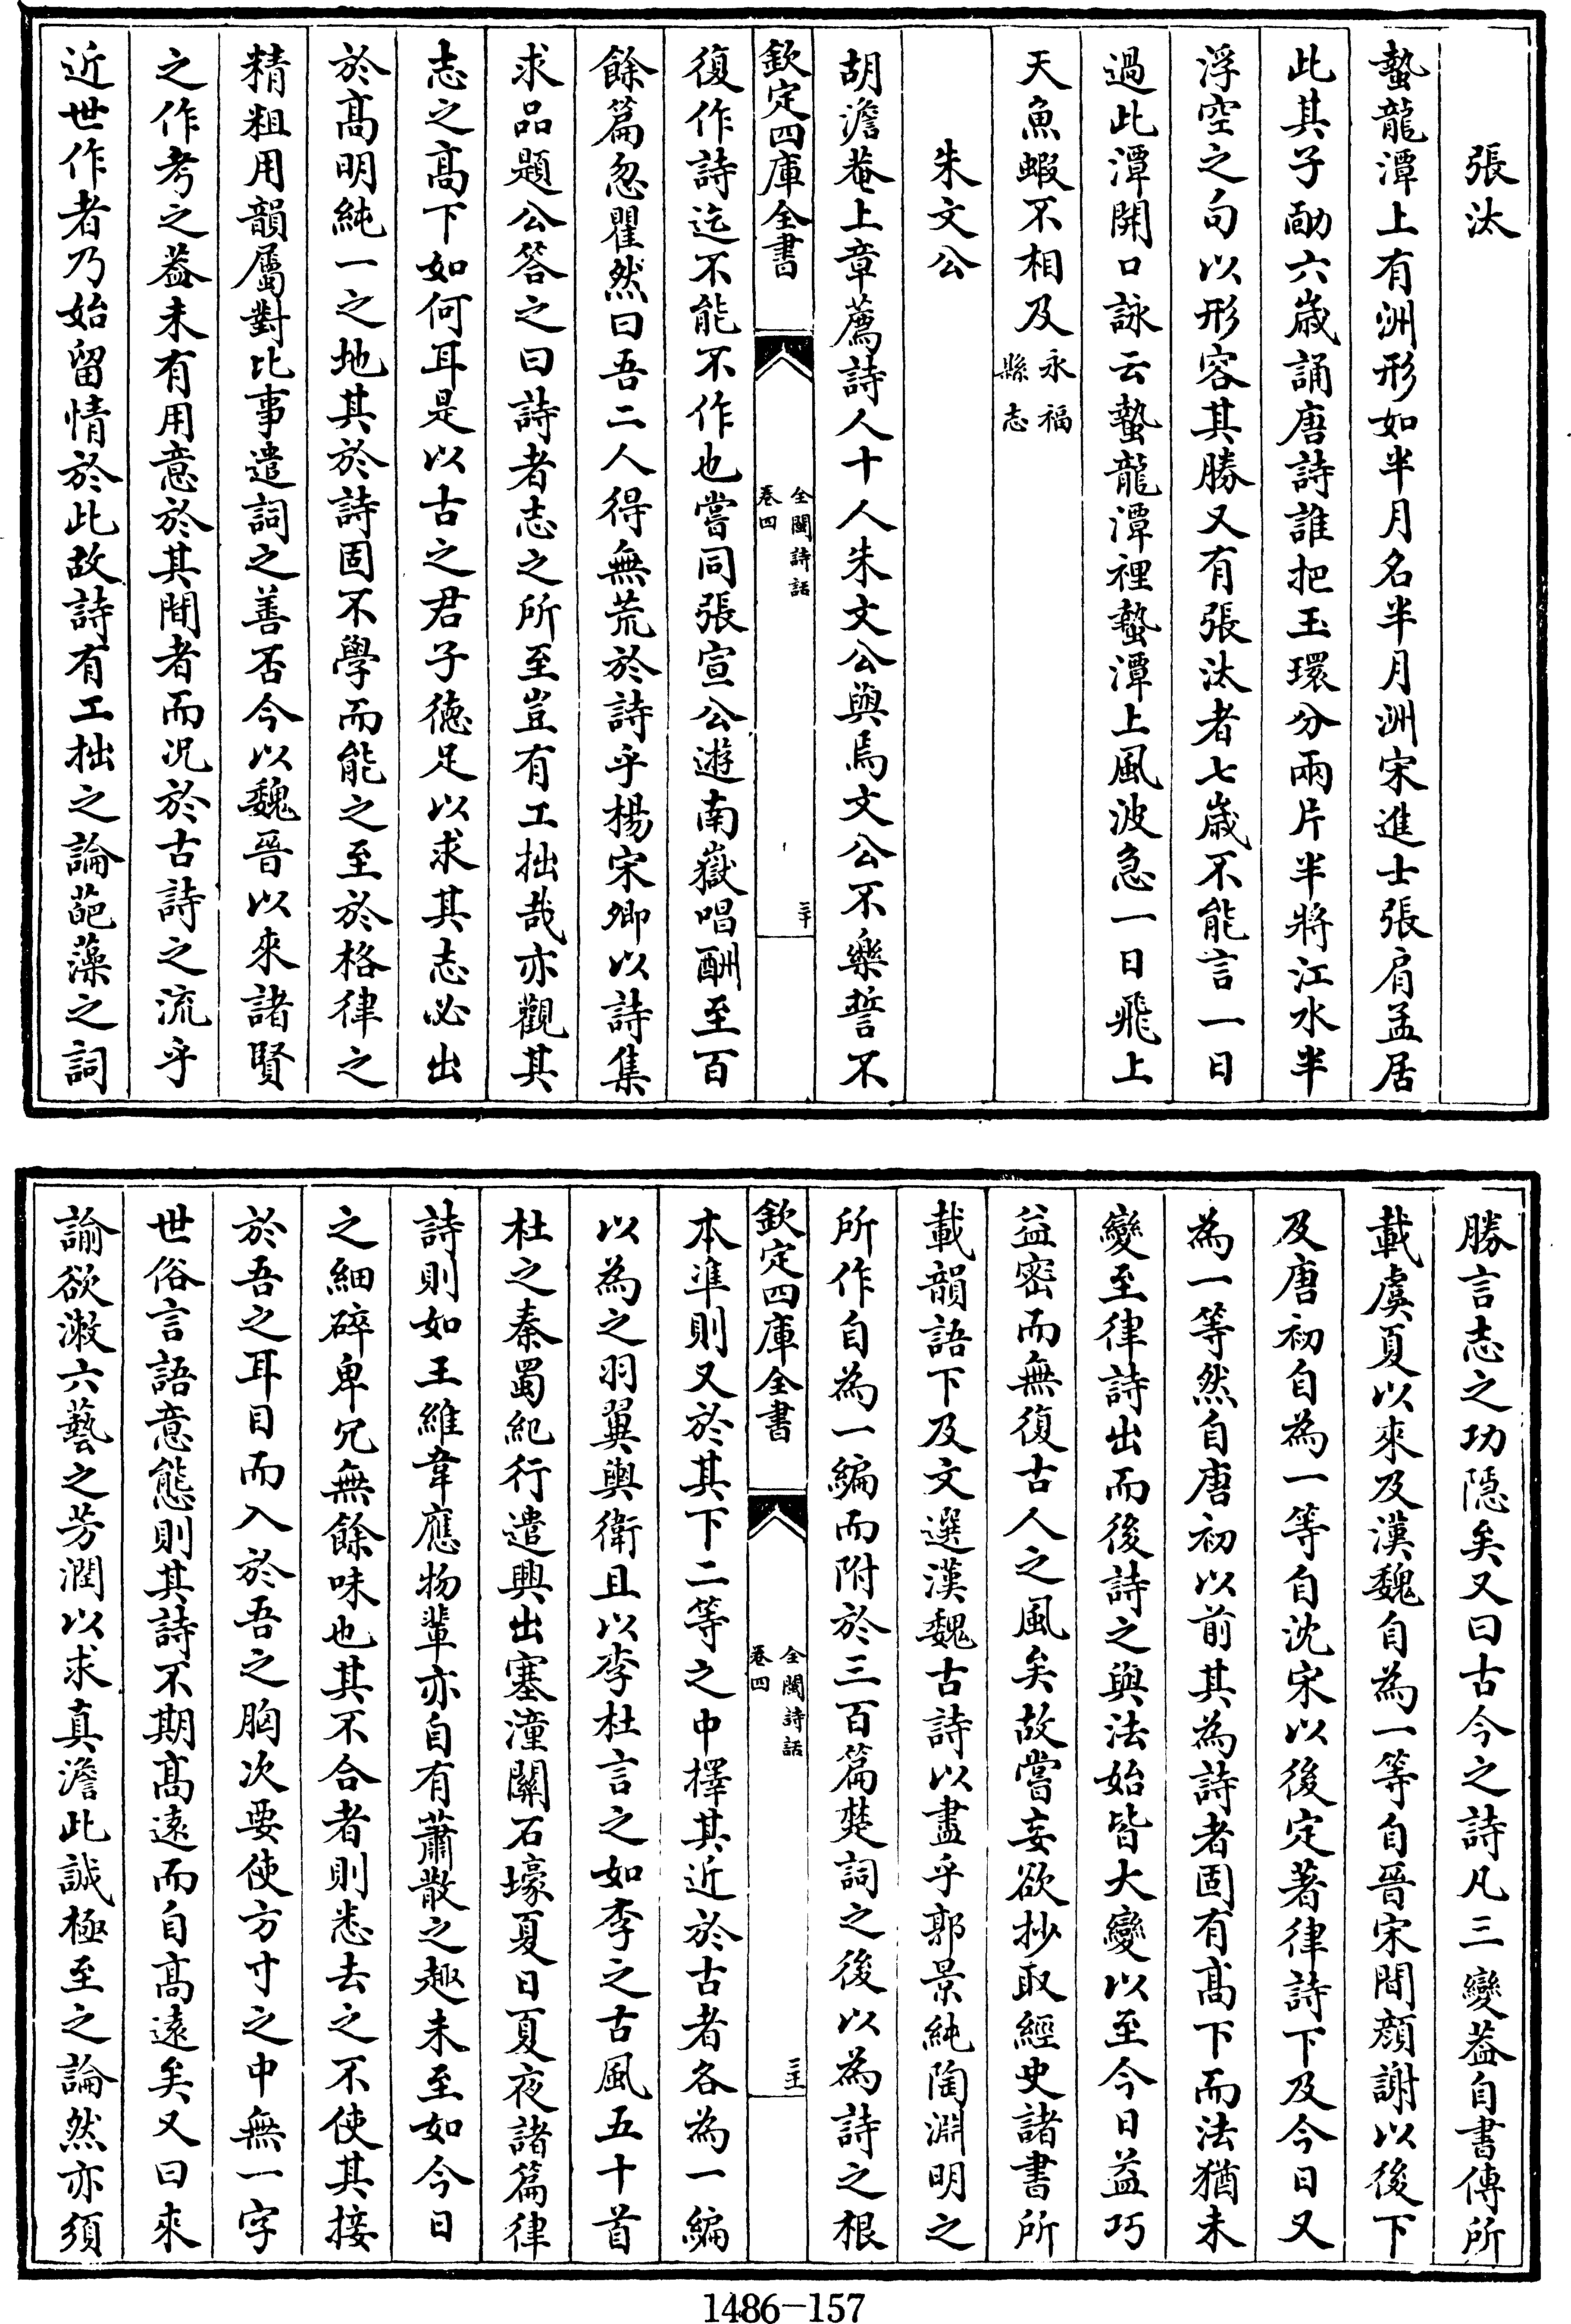 張汰
蟄龍潭上有洲形如半月名半月洲宋進士張肩孟居
此其子勔六歲誦唐詩誰把玉環分兩片半將江水半
浮空之句以形容其勝又有張汰者七歲不能言一日
過此潭開口詠云蟄龍潭裡蟄潭上風波急一日飛上
天魚蝦不相及永福縣志
朱文公
胡澹菴上章薦詩人十人朱文公與焉文公不樂誓不
欽定四庫全書 全閩詩話 卷四 三十
復作詩迄不能不作也嘗同張宣公遊南嶽唱酬至百
餘篇忽瞿然曰吾二人得無荒於詩乎楊宋卿以詩集
求品題公答之曰詩者志之所至豈有工拙哉亦觀其
志之高下如何耳是以古之君子德足以求其志必出
於高明純一之地其於詩固不學而能之至於格律之
精粗用韻屬對比事遣詞之善否今以魏晉以來諸賢
之作考之葢未有用意於其間者而况於古詩之流乎
近世作者乃始留情於此故詩有工拙之論葩藻之詞
勝言志之功隱矣又曰古今之詩凡三變葢自書傳所
載虞夏以來及漢魏自為一等自晉宋間顔謝以後下
及唐初自為一等自沈宋以後定著律詩下及今日又
為一等然自唐初以前其為詩者固有高下而法猶未
變至律詩出而後詩之與法始皆大變以至今日益巧
益密而無復古人之風矣故嘗妄欲抄取經史諸書所
載韻語下及文選漢魏古詩以盡乎郭景純陶淵明之
所作自為一編而附於三百篇楚詞之後以為詩之根
欽定四庫全書 全閩詩話 卷四 三十一
本凖則又於其下二等之中擇其近於古者各為一編
以為之羽翼輿衛且以李杜言之如李之古風五十首
杜之秦蜀紀行遣興出塞潼關石壕夏日夏夜諸篇律
詩則如王維韋應物輩亦自有蕭散之趣未至如今日
之細碎卑冗無餘味也其不合者則悉去之不使其接
於吾之耳目而入於吾之胸次要使方寸之中無一字
世俗言語意態則其詩不期高遠而自高遠矣又曰來
諭欲漱六藝之芳潤以求真澹此誠極至之論然亦須
1486-157